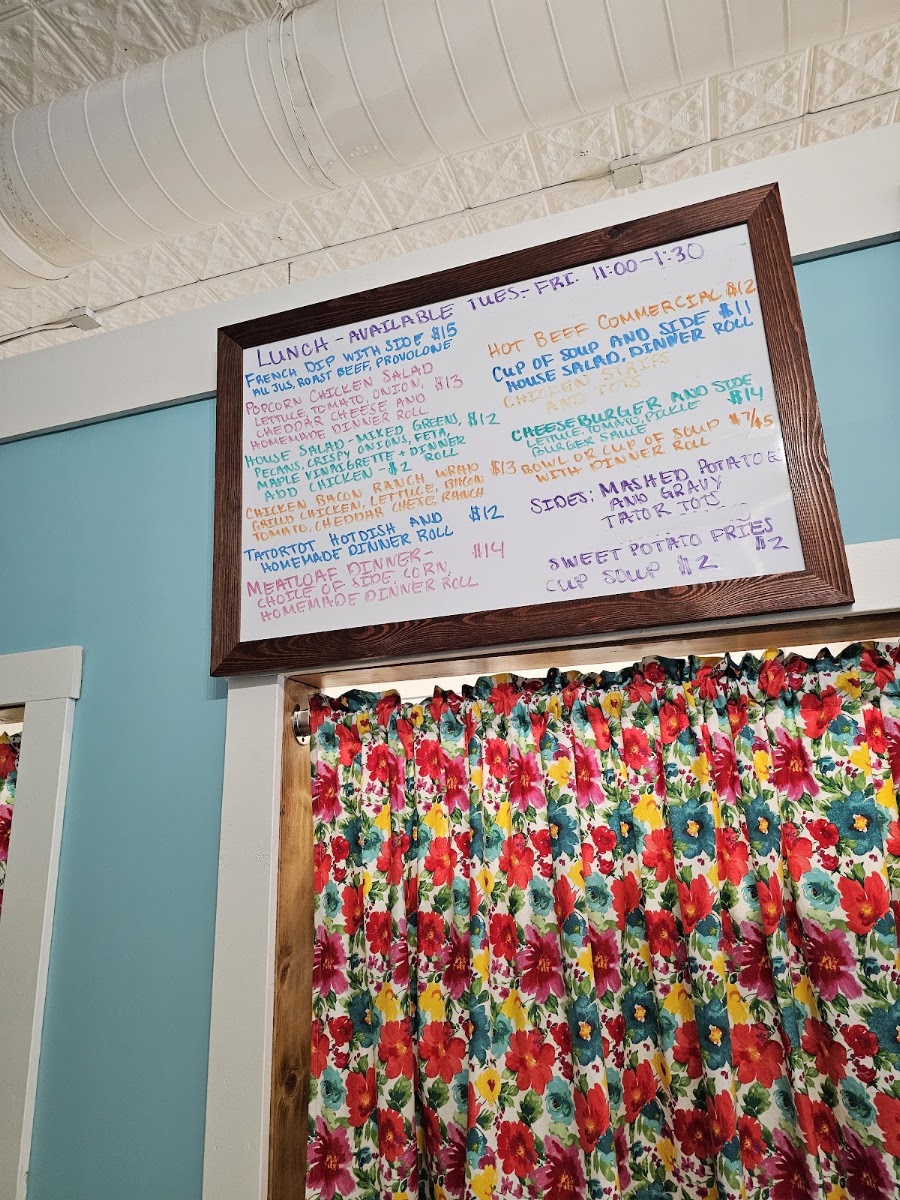 LUNCH - AVAILABLE TUES-FRI 11:00-1:30
FRENCH DIP WITH SIDE $15
AU JUS, ROAST BEEF, PROVOLONE
POPCORN CHICKEN SALAD
LETTUCE, TOMATO, ONION, $13
CHEDDAR CHEESE AND
HOMEMADE DINNER ROLL
HOUSE SALAD - MIXED GREENS, $12
PECANS, CRISPY ONIONS, FETA,
MAPLE VINAIGRETTE + DINNER
ADD CHICKEN - $2 ROLL
CHICKEN BACON RANCH WRAP $13
GRILLD CHICKEN, LETTUCE, BACON
TOMATO, CHEDDAR CHESE, RANCH
TATORTOT HOTDISH AND $12
HOMEMADE DINNER ROLL
MEATLOAF DINNER - $14
CHOICE OF SIDE, CORN,
HOMEMADE DINNER ROLL
HOT BEEF COMMERCIAL $12
CUP OF SOUP AND SIDE $11
HOUSE SALAD, DINNER ROLL
CHICKEN STRIPS
AND TOTS
CHEESEBURGER AND SIDE
LETTUCE, TOMATO, PICKLE $14
BURGER SAUCE
BOWL OR CUP OF SOUP $7/$5
WITH DINNER ROLL
SIDES: MASHED POTATOES
AND GRAVY
TATOR TOTS
SWEET POTATO FRIES
$2
CUP SOUP $2